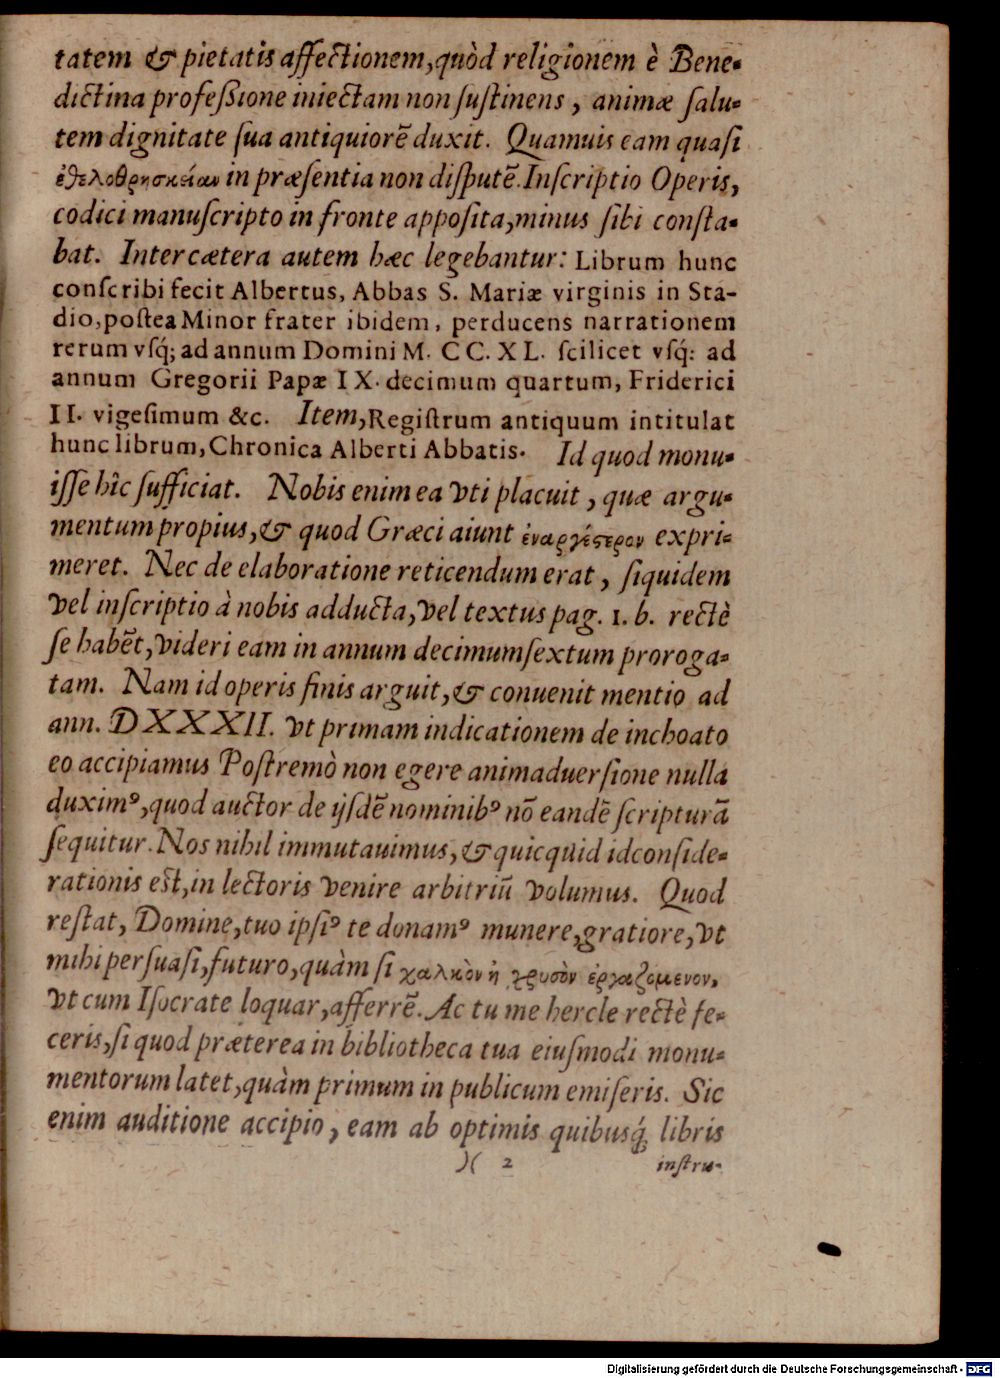 tatem & pietatis affectionem, quòd religionem è Bene-
dictina profeßione iniectam non ſuſtinens, animæ ſalu-
tem dignitate ſua antiquiorẽ duxit. Quamuis eam quaſi
ἐθελοθρησκείαν in præſentia non diſputẽ. Inſcriptio Operis,
codici manuſcripto in fronte appoſita, minus ſibi conſta-
bat. Inter cætera autem hæc legebantur: Librum hunc
conſcribi fecit Albertus, Abbas S. Mariæ virginis in Sta-
dio, poſtea Minor frater ibidem, perducens narrationem
rerum vſq́; ad annum Domini M. CC. XL. ſcilicet vſq́: ad
annum Gregorii Papæ IX. decimum quartum, Friderici
II. vigeſimum &c. Item, Regiſtrum antiquum intitulat
hunc librum, Chronica Alberti Abbatis. Id quod monu-
iſſe hîc ſufficiat. Nobis enim ea vti placuit, quæ argu-
mentum propius, & quod Græci aiunt ἐναργέστερον expri-
meret. Nec de elaboratione reticendum erat, ſiquidem
vel inſcriptio à nobis adducta, vel textus pag. 1. b. rectè
ſe habẽt, videri eam in annum decimumſextum proroga-
tam. Nam id operis finis arguit, & conuenit mentio ad
ann. DXXXII. vt primam indicationem de inchoato
eo accipiamus Poſtremò non egere animaduerſione nulla
duximꝰ, quod auctor de ijſdẽ nominibꝰ nõ eandẽ ſcripturã
ſequitur. Nos nihil immutauimus, & quicquid id conſide-
rationis eſt, in lectoris venire arbitriũ volumus. Quod
reſtat, Domine, tuo ipſiꝰ te donamꝰ munere, gratiore, vt
mihi perſuaſi, futuro, quàm ſi χαλκὸν ἢ χρυσὸν ἐργαζομενον,
vt cum Iſocrate loquar, afferrẽ. Ac tu me hercle rectè fe-
ceris, ſi quod præterea in bibliotheca tua eiuſmodi monu-
mentorum latet, quàm primum in publicum emiſeris. Sic
enim auditione accipio, eam ab optimis quibusq́; libris
)( 2 inſtru-
Digitalisierung gefördert durch die Deutsche Forschungsgemeinschaft - DFG